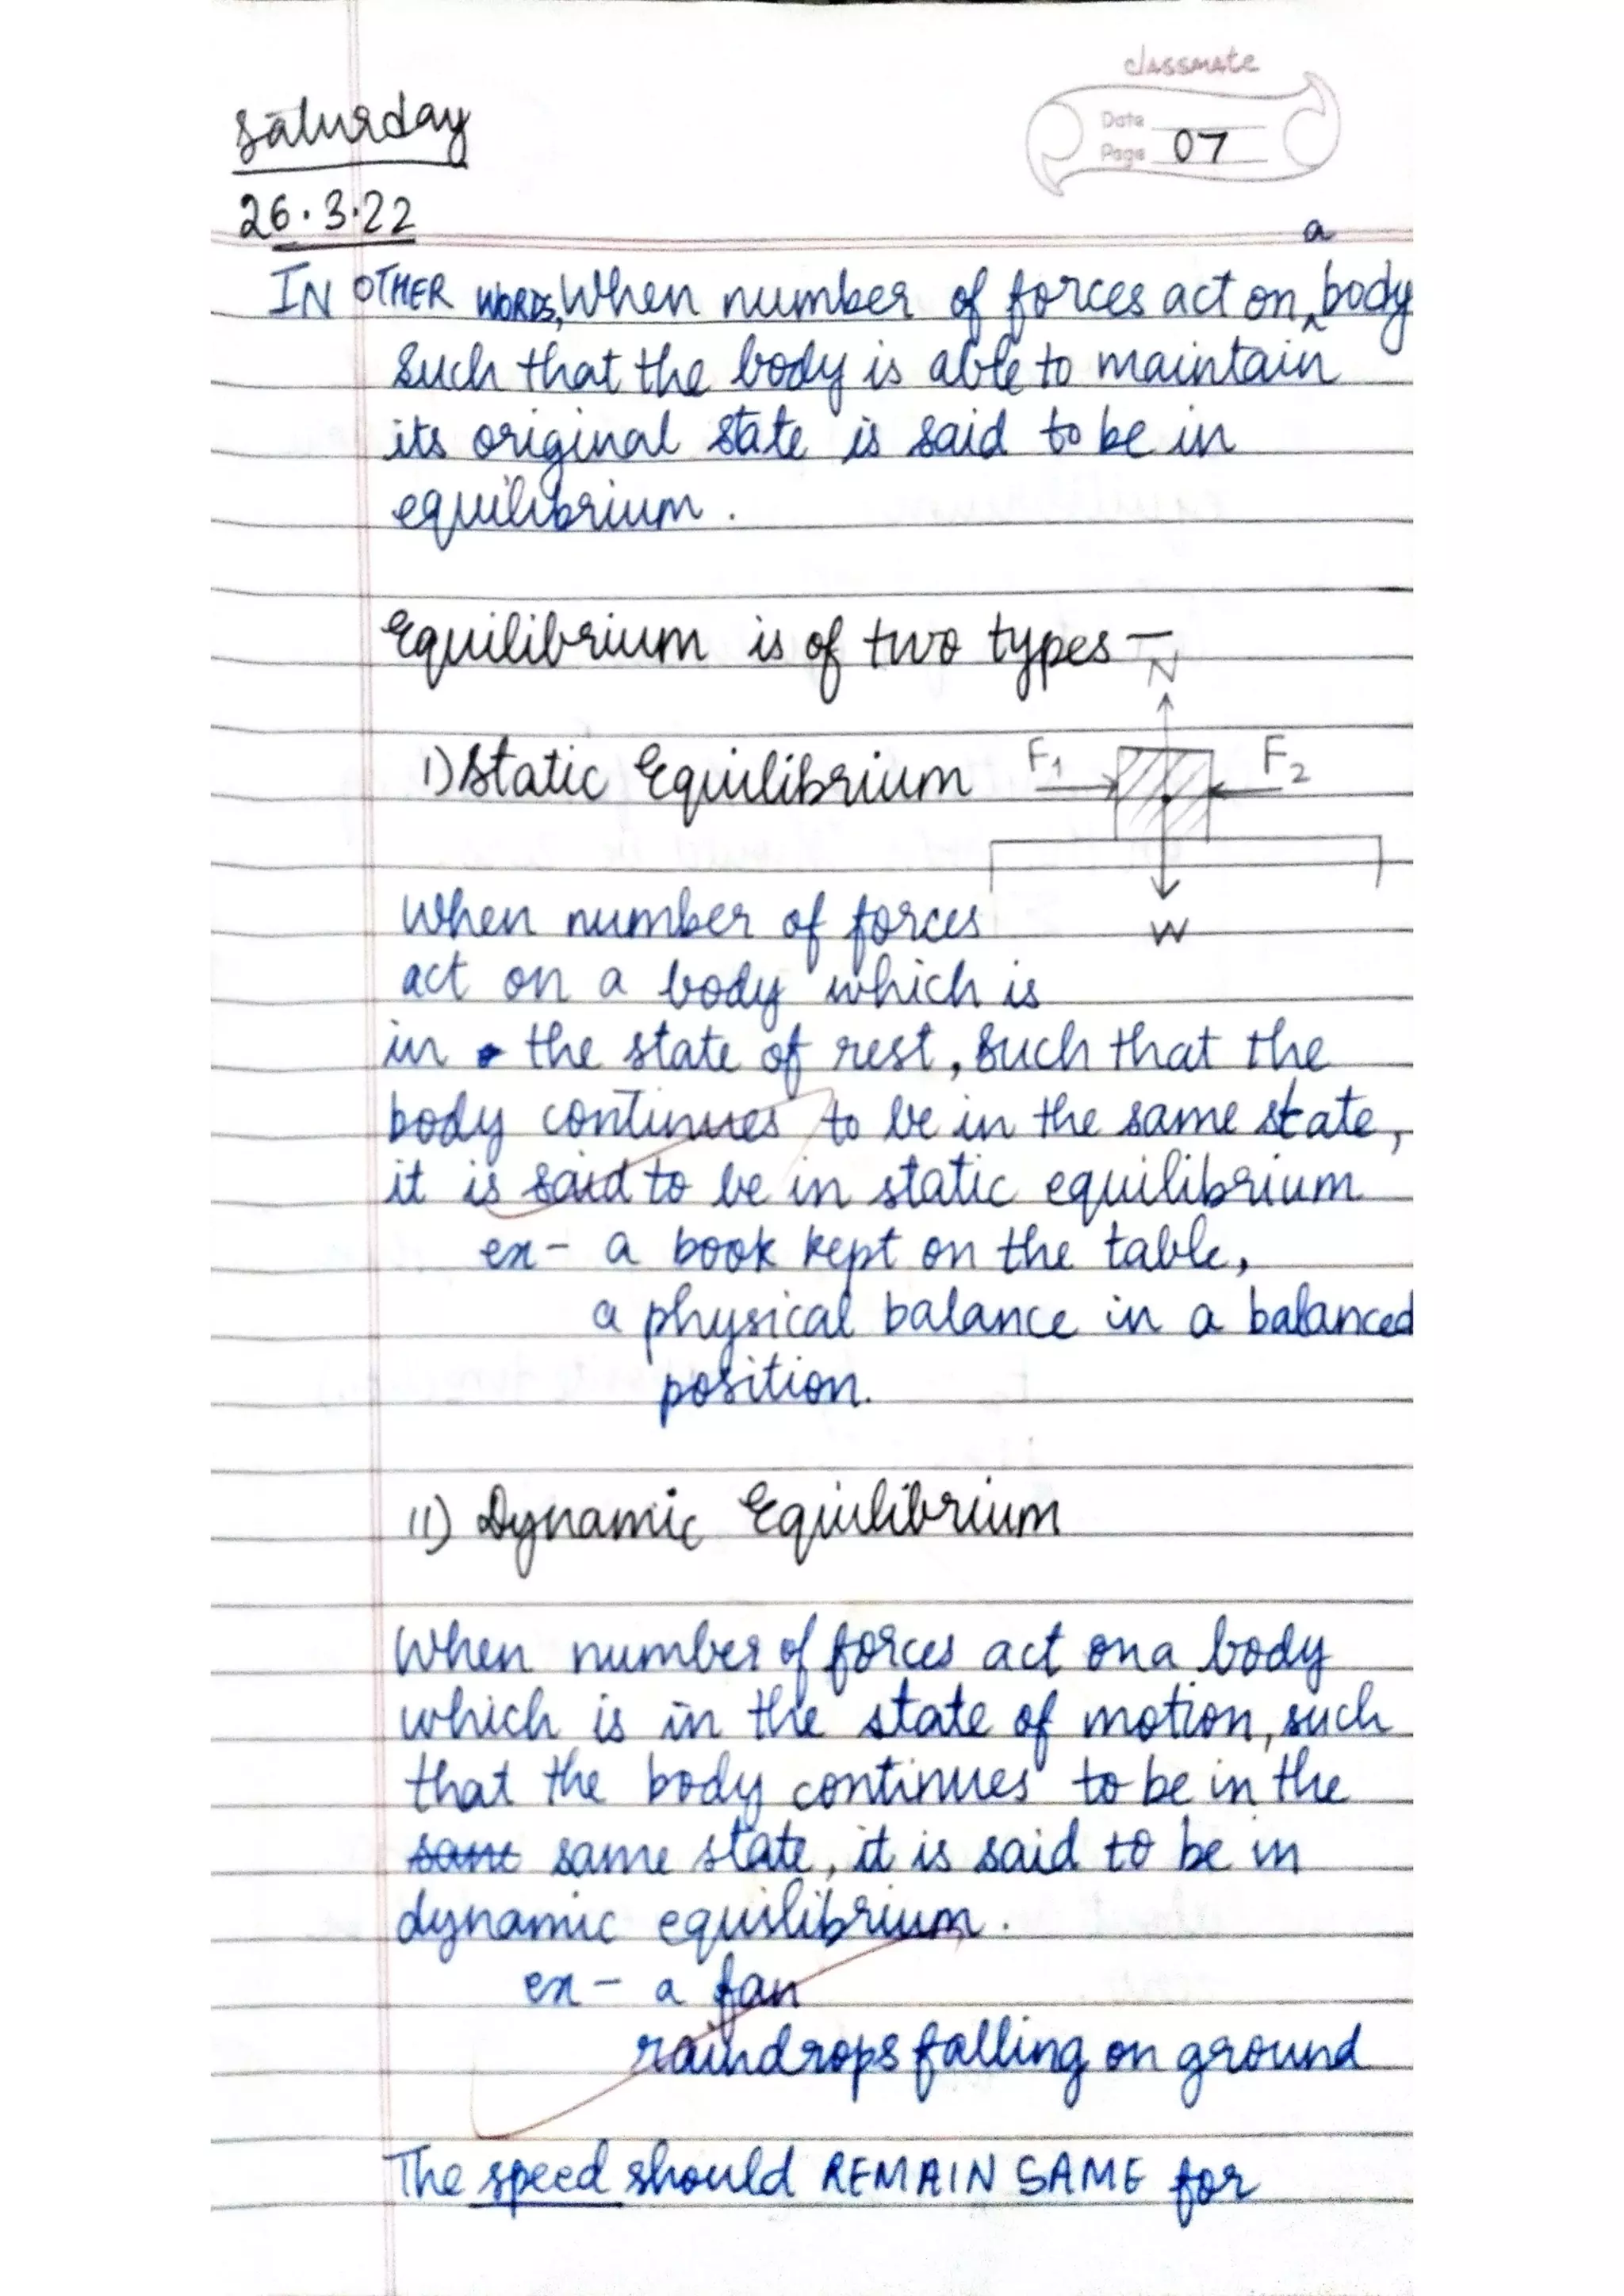 classmate
Date
Page 07
Saturday
26.3.22
a
IN OTHER WORDS, When number of forces act on ^ body
such that the body is able to maintain
its original state is said to be in
equilibrium.
Equilibrium is of two types –
N
I) Static Equilibrium F1 F2
When number of forces
W
act on a body which is
in the state of rest, such that the
body continues to be in the same state,
it is said to be in static equilibrium
ex- a book kept on the table,
a physical balance in a balanced
position.
II) Dynamic Equilibrium
When number of forces act on a body
which is in the state of motion, such
that the body continues to be in the
same state, it is said to be in
dynamic equilibrium.
ex – a fan
raindrops falling on ground
The speed should REMAIN SAME for